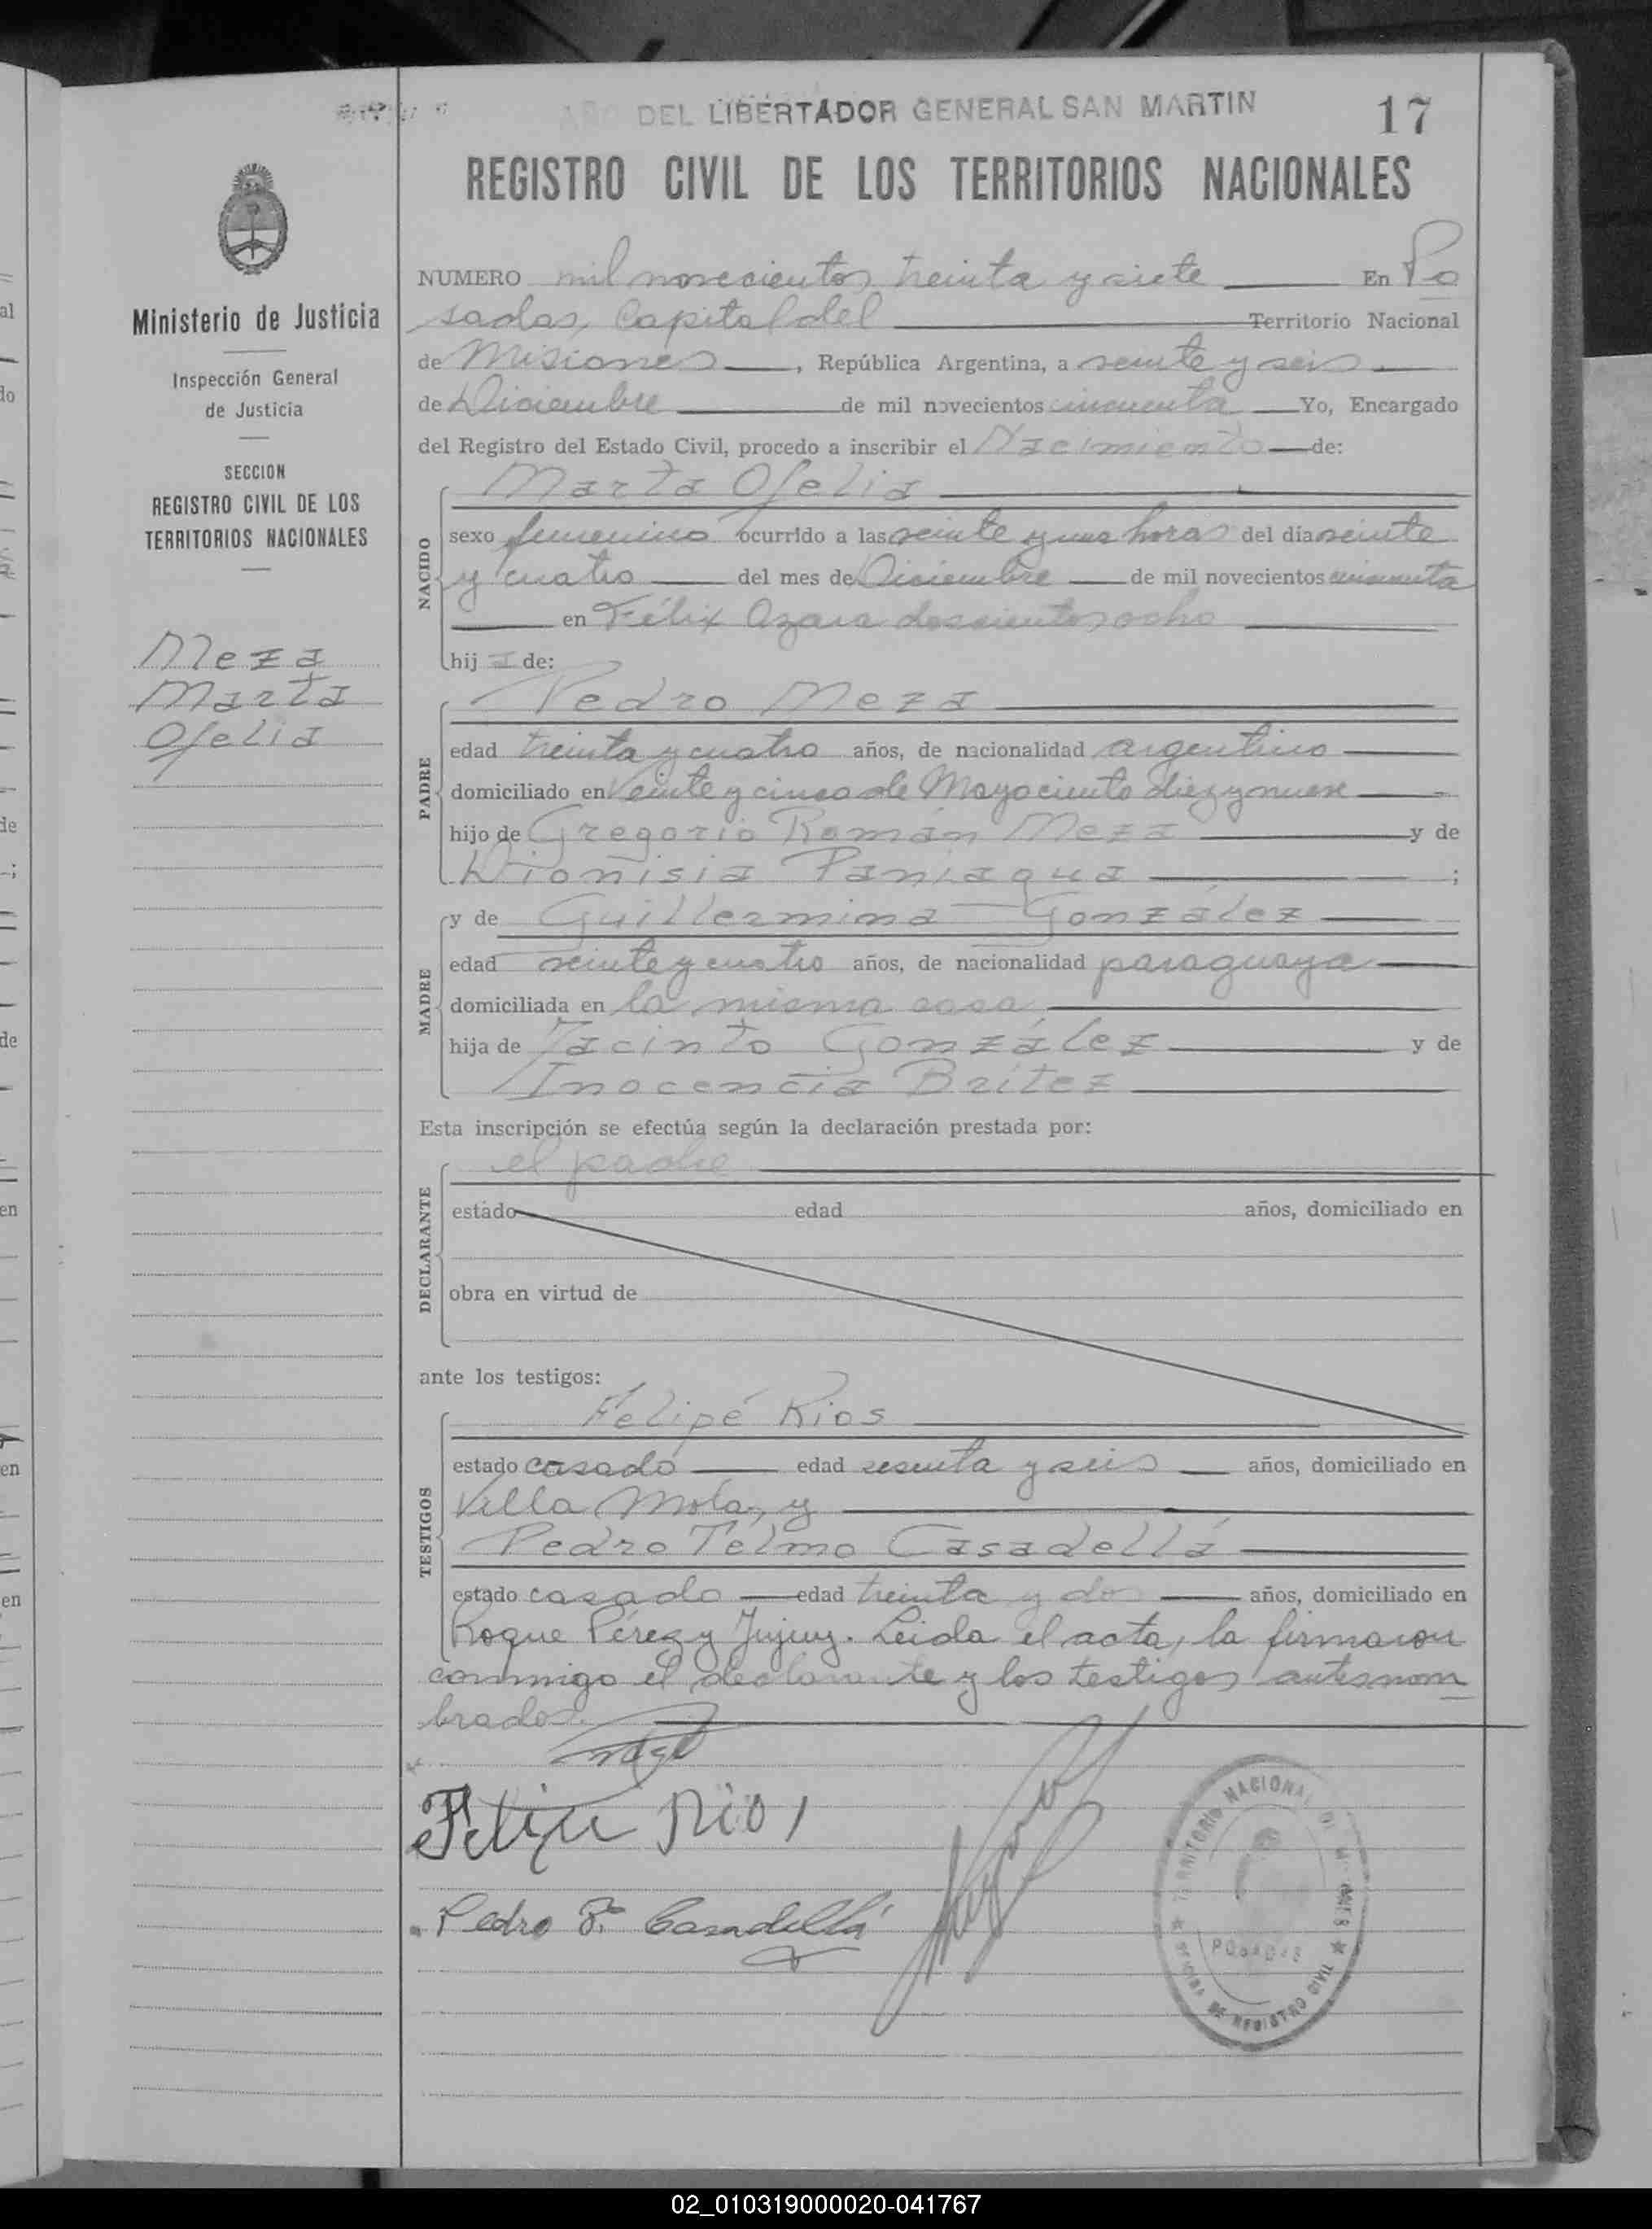 AÑO DEL LIBERTADOR GENERAL SAN MARTIN
17
REGISTRO CIVIL DE LOS TERRITORIOS NACIONALES
Ministerio de Justicia
Inspección General
de Justicia
SECCION
REGISTRO CIVIL DE LOS
TERRITORIOS NACIONALES
Meza
Marta
Ofelia
NUMERO mil novecientos treinta y siete En Po
sadas, Capital del Territorio Nacional
de Misiones, República Argentina, a veinte y seis
de Diciembre de mil novecientos cincuenta Yo, Encargado
del Registro del Estado Civil, procedo a inscribir el Nacimiento de:
Marta Ofelia
NACIDO
sexo femenino ocurrido a las veinte y una horas del dia veinte
y cuatro del mes de Diciembre de mil novecientos cincuenta
en Félix Azara doscientos ocho
hij a de:
Pedro Meza
PADRE
edad treinta y cuatro años, de nacionalidad argentino
domiciliado en Veinte y cinco de Mayo ciento diez y nueve
hijo de Gregorio Román Meza y de
Dionisia Paniagua ;
y de Guillermina González
MADRE
edad veinte y cuatro años, de nacionalidad paraguaya
domiciliada en la misma casa
hija de Jacinto González y de
Inocencia Brítez
Esta inscripción se efectúa según la declaración prestada por:
el padre
DECLARANTE
estado edad años, domiciliado en
obra en virtud de
ante los testigos:
Felipe Rios
TESTIGOS
estado casado edad sesenta y seis años, domiciliado en
Villa Mola, y
Pedro Telmo Casadellá
estado casado edad treinta y dos años, domiciliado en
Roque Pérez y Jujuy. Leida el acta, la firmaron
conmigo el declarante y los testigos antesnom
brados.
Felipe Rios
Pedro T. Casadellá
TERRITORIO NACIONAL DE MISIONES
POSADAS
OFICINA DE REGISTRO CIVIL
02_010319000020-041767